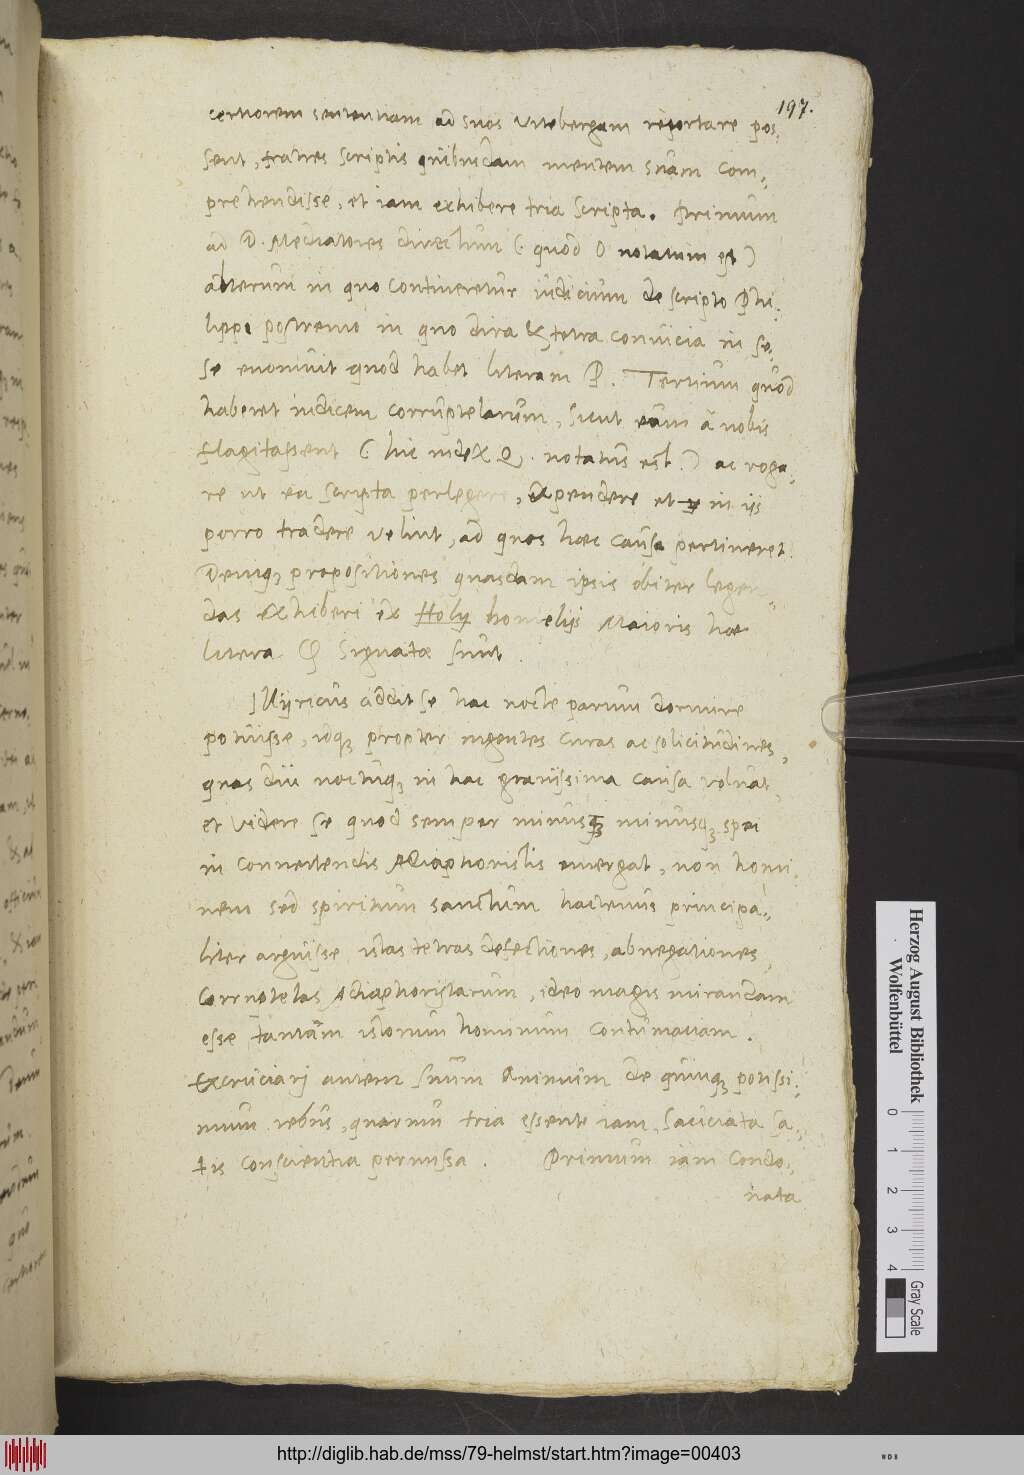 197.
certiorem sententiam ad suos Vitebergam reportare pos-
sent, fratres scriptis quibusdam mentem suam com-
prehendisse, et iam exhibere tria scripta. Primum
ad D. Mediatores directum (quod O notatum est)
alterum in quo contineretur iudicium de scripto Phi-
lippi postremo in quo dira & tetra convicia in se-
se evomuit quod habet literam P. Tertium quod
haberet indicem corruptelarum, sicut eam à nobis
flagitassent (hic index Q. notatus est.) ac roga-
re ut ea scripta perlegere, expendere et in iis
porro tradere velint, ad quos haec causa pertineret.
Deniq3 propositiones quasdam ipsis obiter legen-
das exhiberi ex homelijs Maioris hae
litera signatae sunt.
Illyricus addit se hac nocte parum dormire
potuisse, idq3 propter ingentes curas ac solicitudines,
quas diu noctuq3 in hac gravissima causa volvat,
et videre se quod semper minusq3 minusq3 spei
in convertendis Adiaphoristis , non homi-
nem sed spiritum sanctum hactenus principa-
liter arguisse istas tetras defectiones, abnegationes,
Corruptelas Adiaphoristarum, ideo magis mirandam
esse tantam istorum hominum contumaciam.
Excruciarj autem suum Animum de quinq3 potissi-
mum rebus, quarum tria essent iam, sa-
tis conscientia permissa. Primum iam Condo-
nata
Herzog August Bibliothek
Wolfenbüttel
0 1 2 3 4
Gray Scale
http://diglib.hab.de/mss/79-helmst/start.htm?image=00403